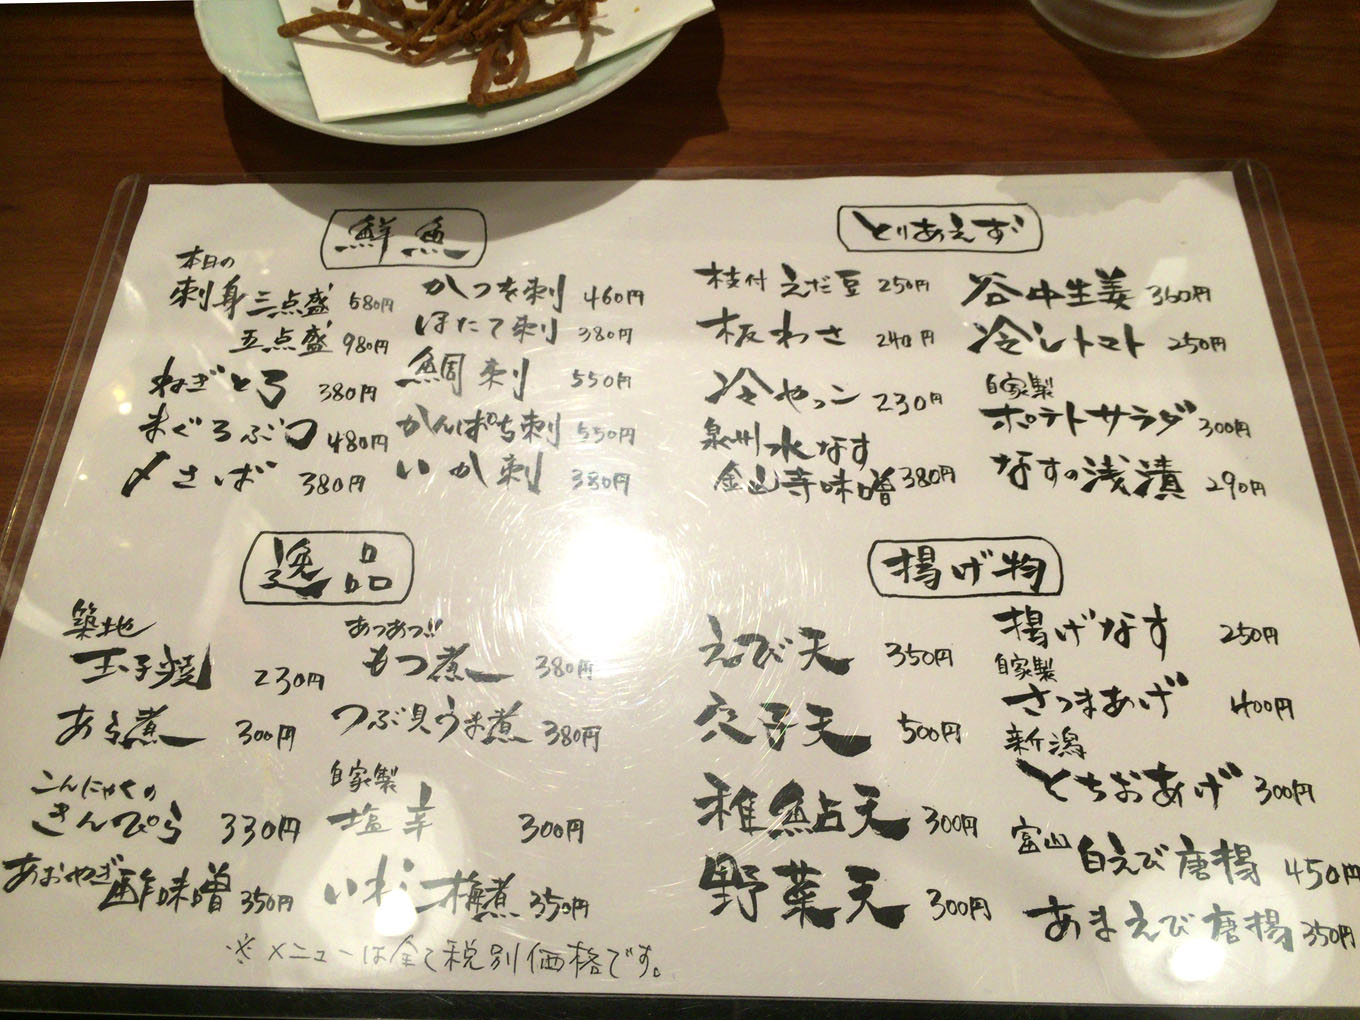 鮮魚
本日の
刺身 三点盛 580円
五点盛 980円
ねぎとろ 380円
まぐろぶつ 480円
〆さば 380円
かつを刺 460円
ほたて刺 380円
鯛刺 550円
かんぱち刺 550円
いか刺 380円
とりあえず
枝付えだ豆 250円
板わさ 240円
冷やっこ 230円
泉州水なす
金山寺味噌 380円
谷中生姜 360円
冷しトマト 250円
自家製
ポテトサラダ 300円
なすの浅漬 290円
逸品
築地
玉子焼 230円
あら煮 300円
こんにゃくの
きんぴら 330円
あおやぎ酢味噌 350円
あつあつ!!
もつ煮 380円
つぶ貝うま煮 380円
自家製
塩辛 300円
いわし梅煮 350円
揚げ物
えび天 350円
穴子天 500円
稚鮎天 300円
野菜天 300円
揚げなす 250円
自家製
さつまあげ 400円
新潟
とちおあげ 300円
富山 白えび唐揚 450円
あまえび唐揚 350円
※メニューは全て税別価格です。